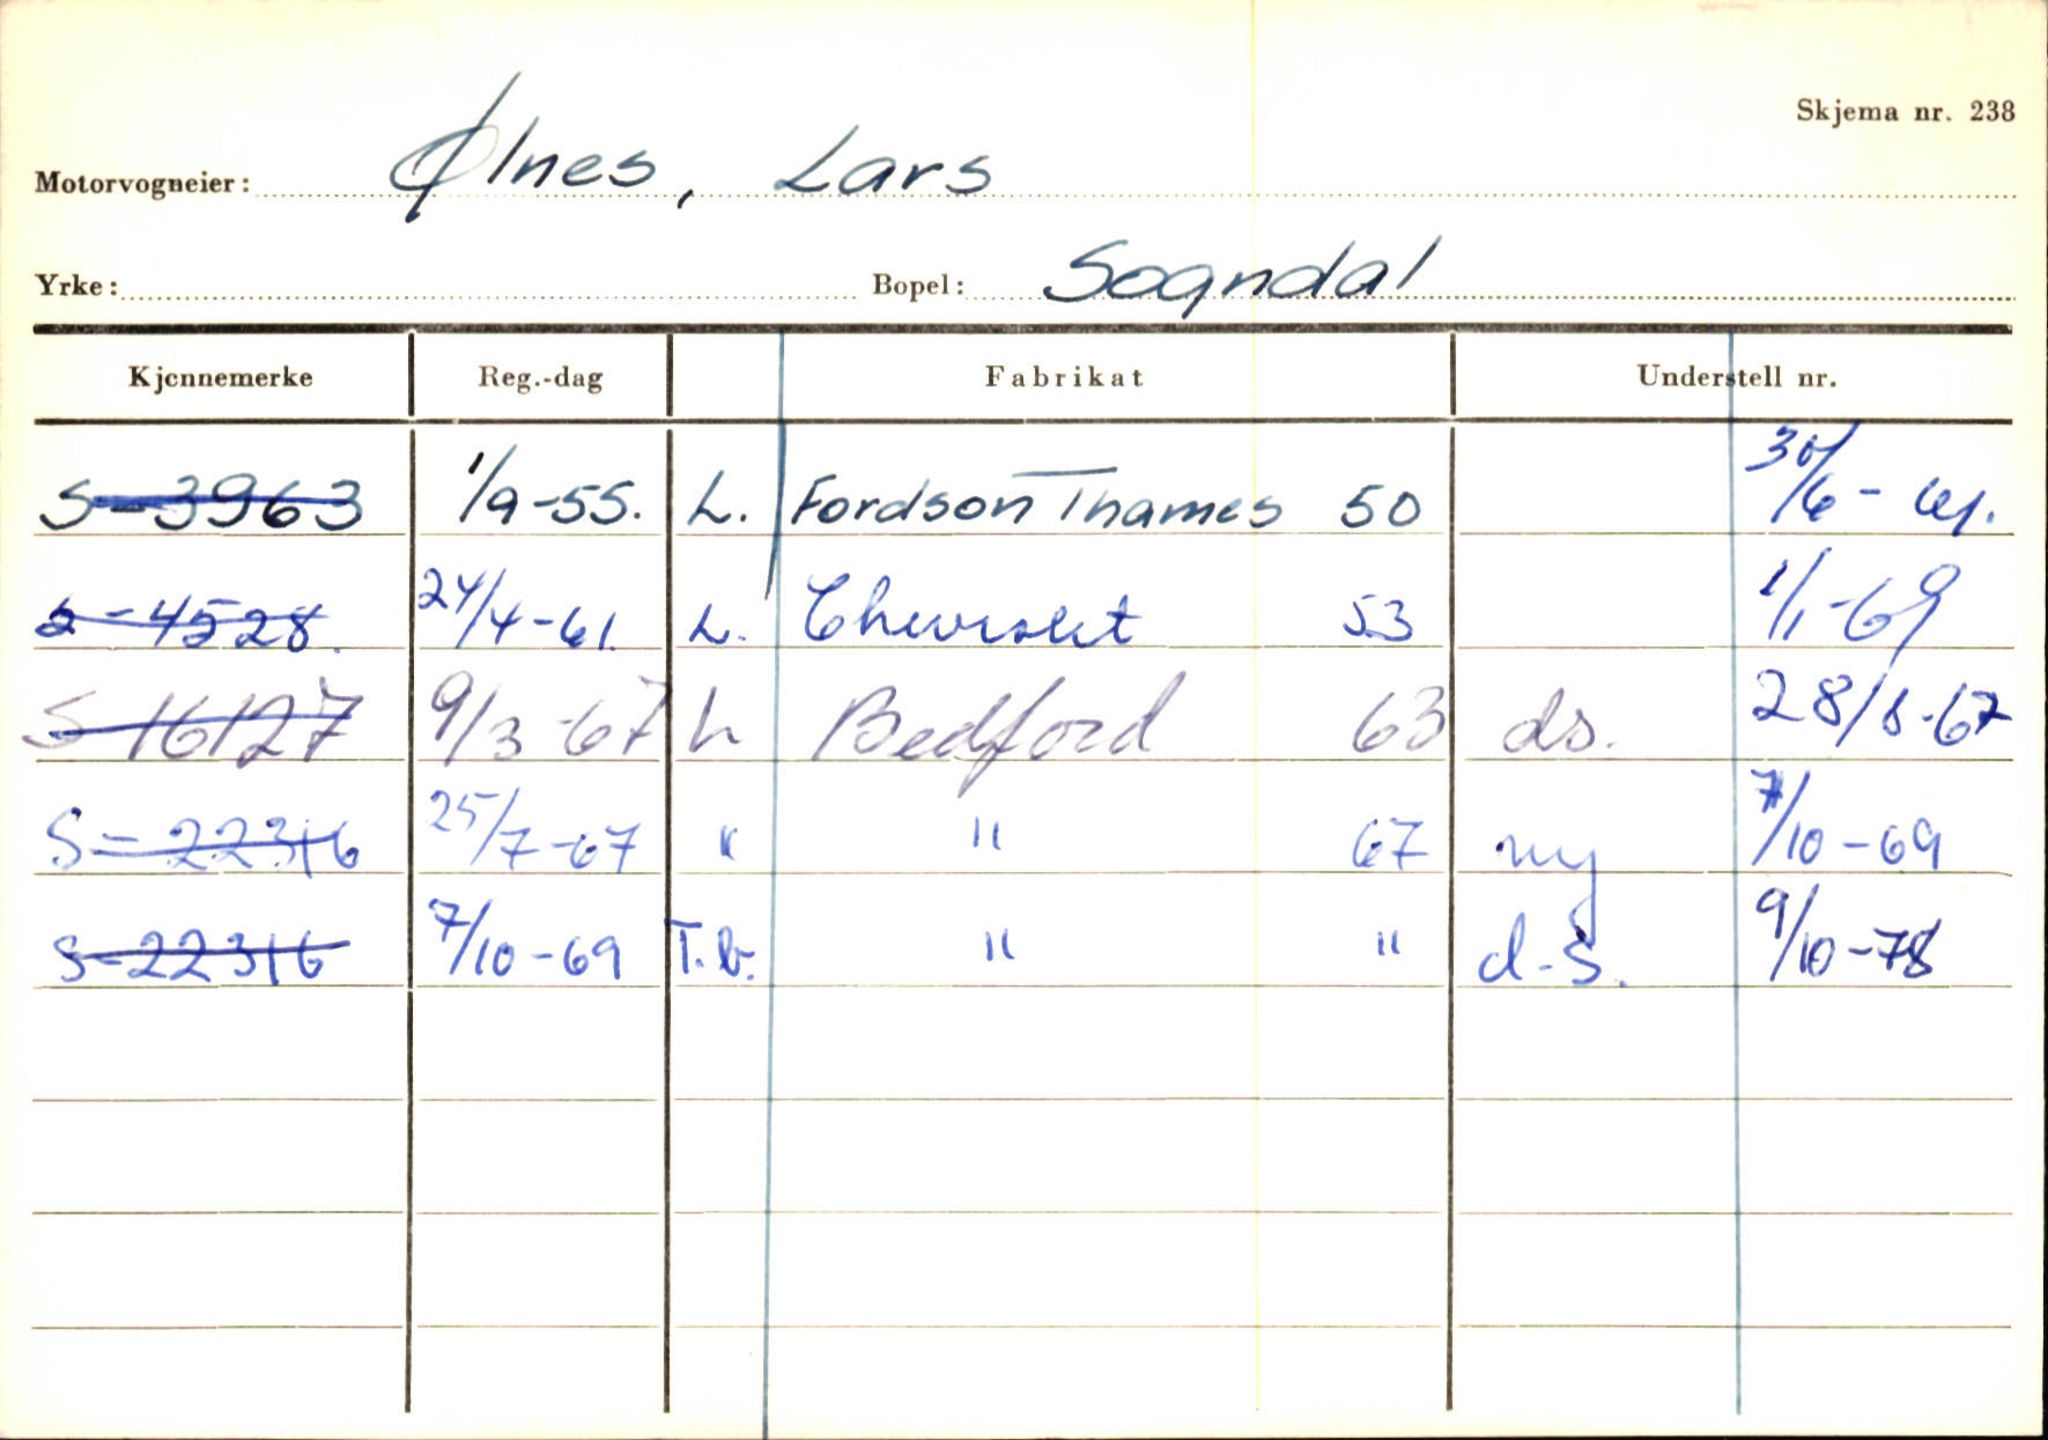 Skjema nr. 238
Motorvogneier: Ølnes, Lars
Yrke: Bopel: Sogndal
Kjennemerke Reg.-dag Fabrikat Understell nr.
S-3963 1/9-55. L. Fordson Thames 50 30/6-61.
S-4528. 24/4-61. L. Chevrolet 53 1/1-69
S-16127 9/3-67 L Bedford 63 ds. 28/8-67
S-22316 25/7-67 " " 67 ny 7/10-69
S-22316 7/10-69 T.b. " " d.s. 9/10-78